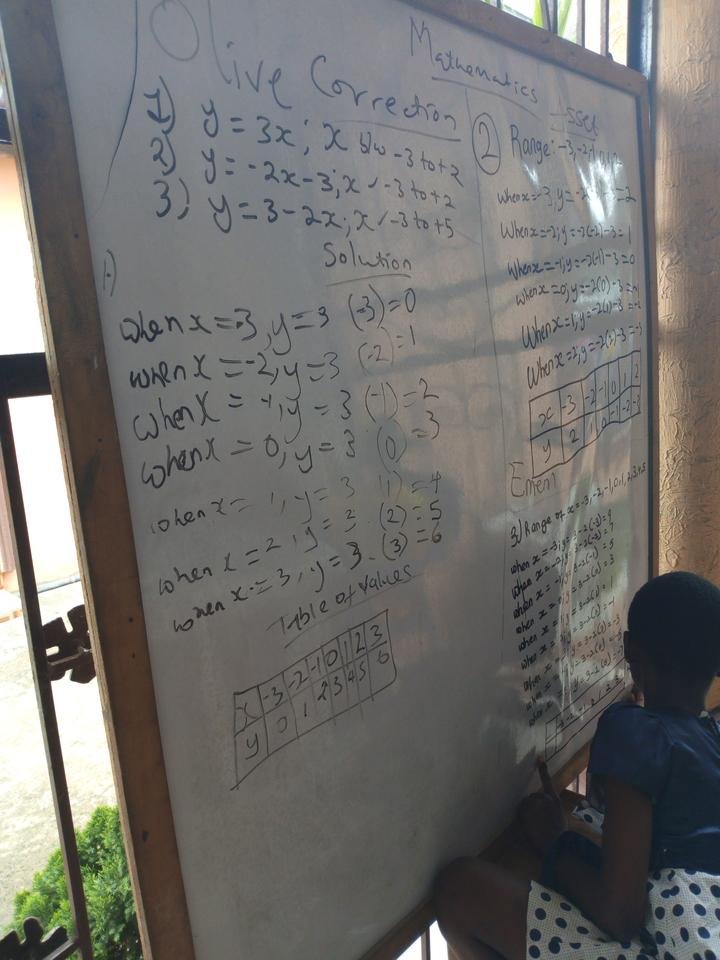 Mathematics
Olive Correction
1) y = 3x; x b/w -3 to +2
2) y = -2x-3; x ✓ -3 to +2
3) y = 3-2x; x ✓ -3 to +5
Solution
1)
when x = -3, y = 3 (-3) = 0
when x = -2, y = 3 (-2) = 1
when x = -1, y = 3 (-1) = 2
when x = 0, y = 3 (0) = 3
when x = 1, y = 3 (1) = 4
when x = 2, y = 3 (2) = 5
when x = 3, y = 3 (3) = 6
Table of values
x -3 -2 -1 0 1 2 3
y 0 1 2 3 4 5 6
2 Range: -3, -2, -1, 0, 1, 2
when x = -3, y = -2
When x = -2; y = -2(-2) -3 = 1
When x = -1; y = -2(-1) -3 = 0
When x = 0, y = -2(0) -3 =
When x = 1, y = -2(1) -3 = -2
When x = 2, y = -2(2) -3 = -3
x -3 -2 -1 0 1 2
y 2 1 0 -1 -2 -3
3) Range of x = -3, -2, -1, 0, 1, 2, 3, 4, 5
when x = -3, y = 3-2(-3) = 9
when x = -2, y = 3-2(-2) = 7
when x = -1, y = 3-2(-1) = 5
when x = 0, y = 3-2(0) = 3
when x
when x
when x
when